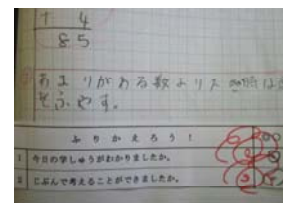 ＋ 4
8 5
あまりがわる数より大
をふやす。
ふりかえろう！
1 今日の学しゅうがわかりましたか。
2 じぶんで考えることができましたか。